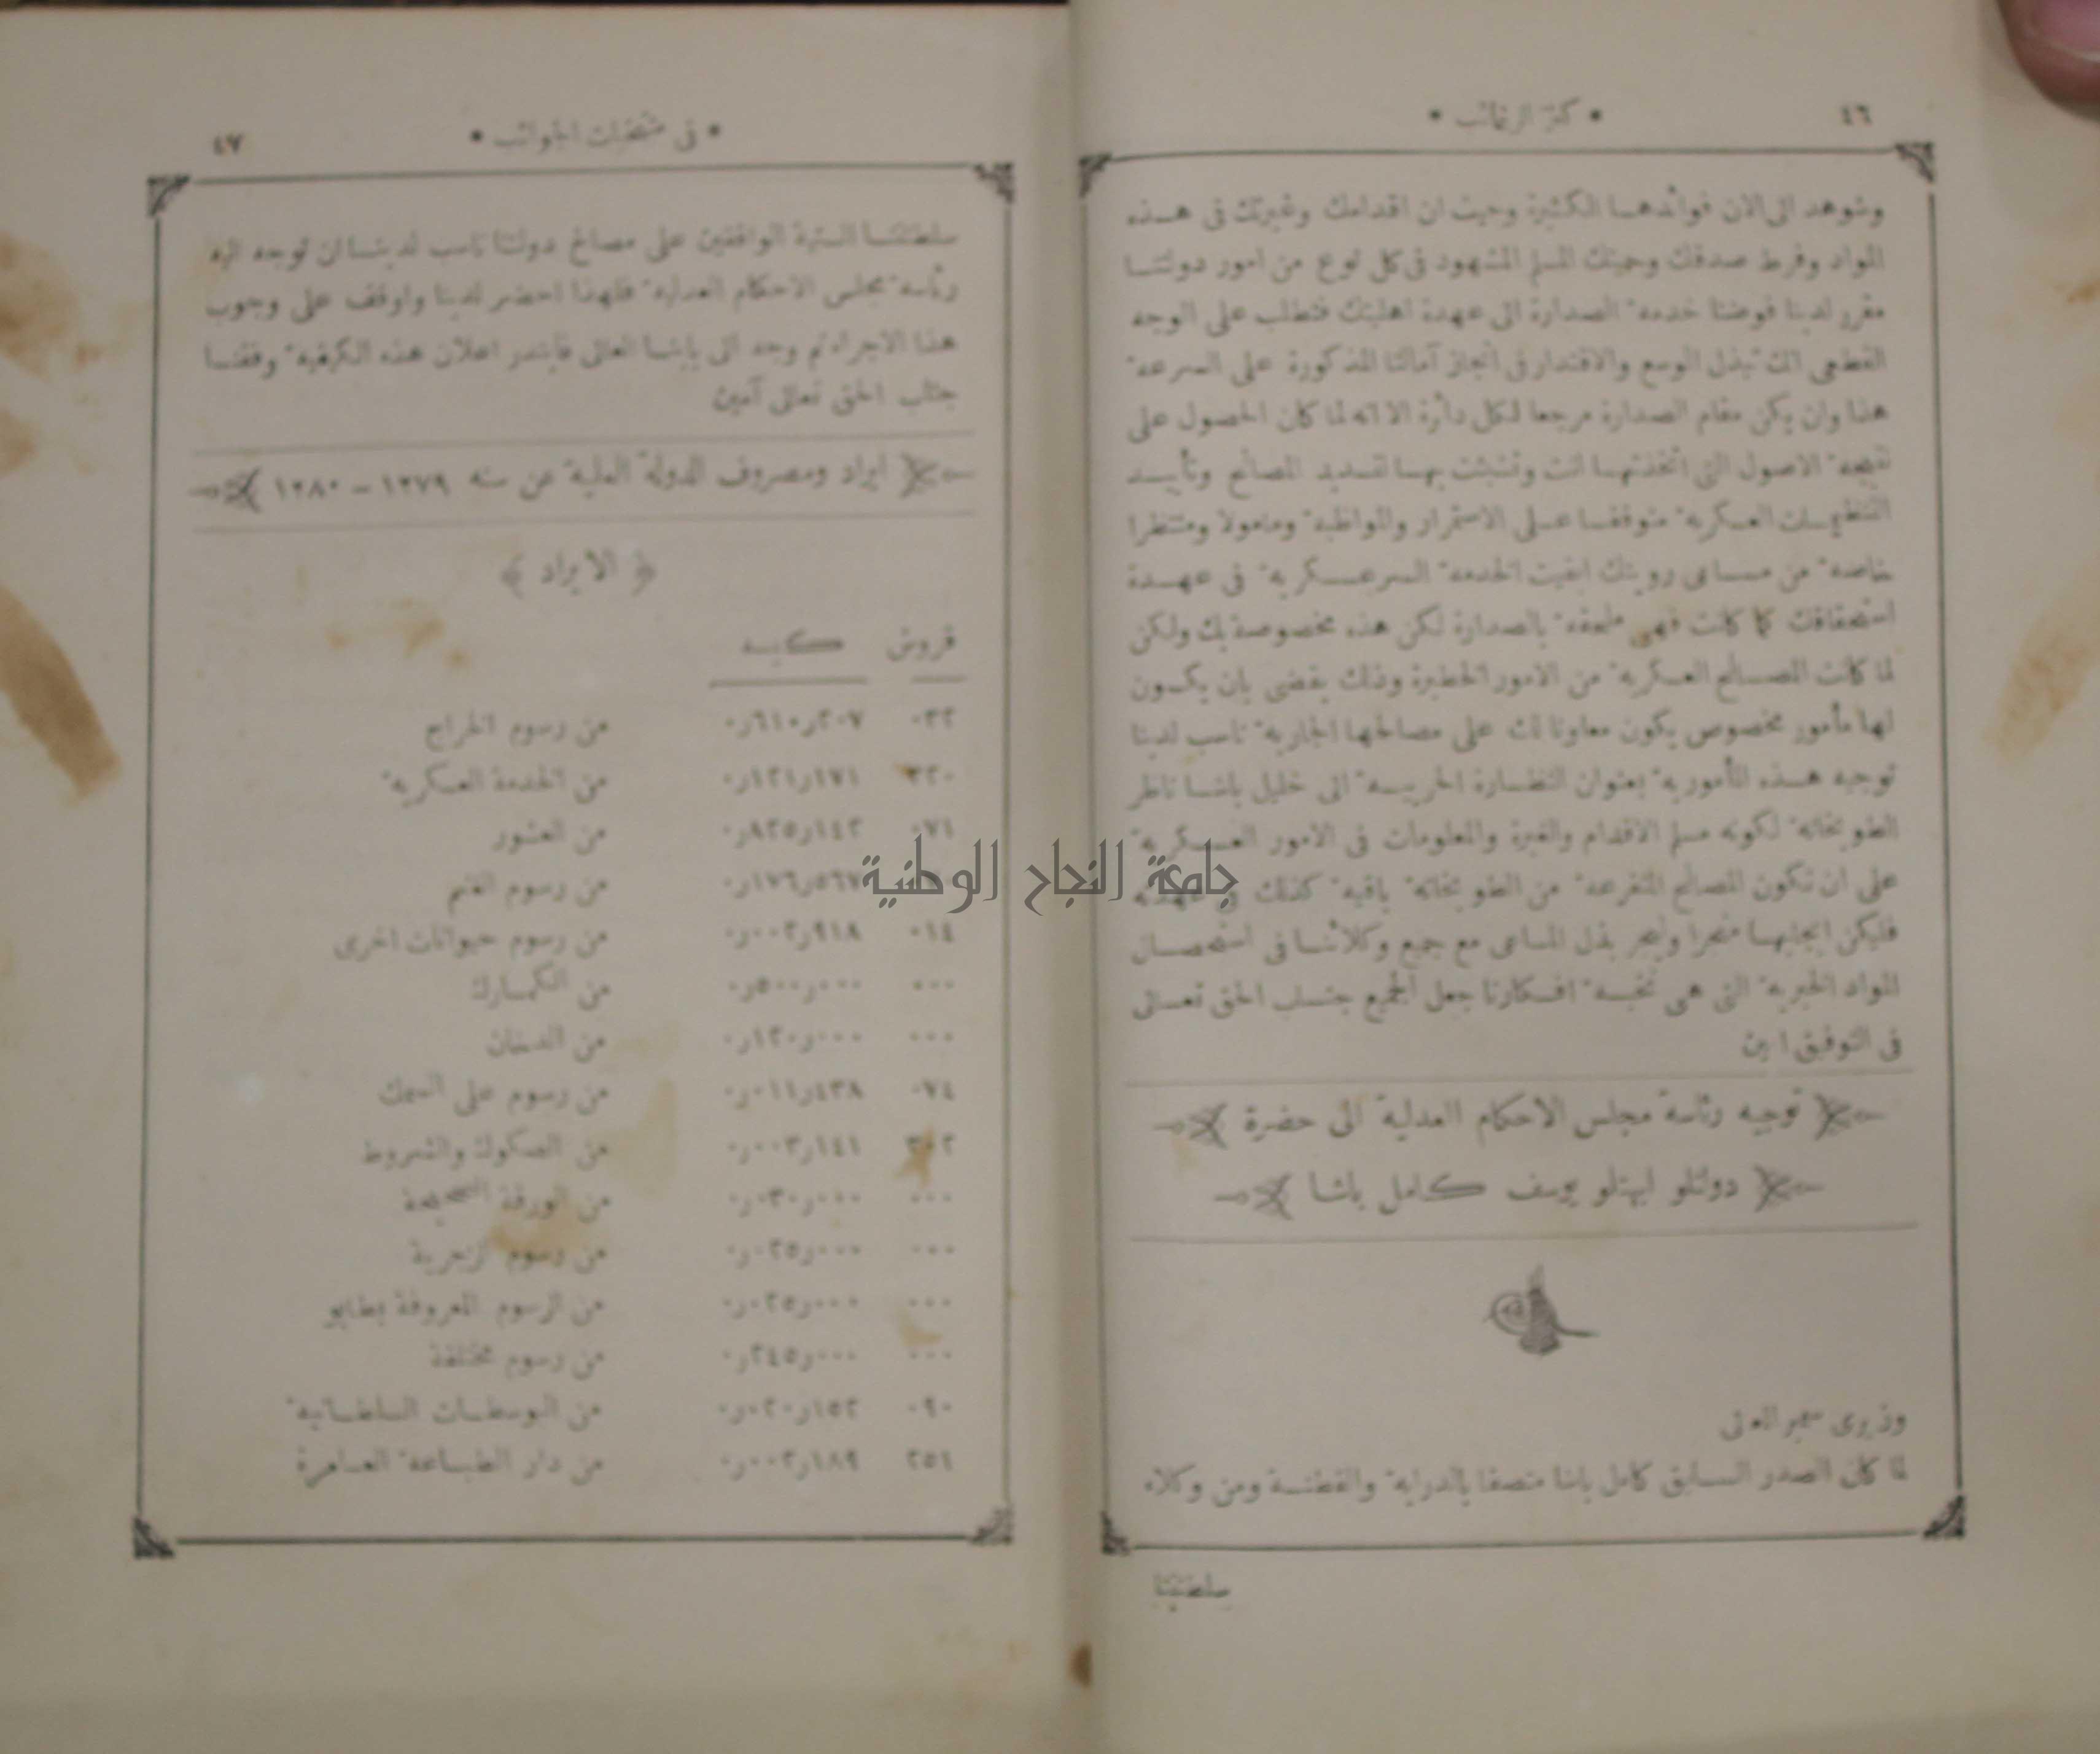 ٤٦
* كنز الرغائب *
وشوهد الى الان فوائدها الكثيرة وحيث ان اقدامك وغيرتك فى هذه
المواد وفرط صدقك وحميتك المسلم المشهود فى كل نوع من امور دولتنا
مقرر لدينا فوضنا خدمة الصدارة الى عهدة اهليتك فنطلب على الوجه
القطعى انك تبذل الوسع والاقتدار فى انجاز آمالنا المذكورة على السرعة
هذا وان يكن مقام الصدارة مرجعا لكل دأرة الا انه لما كان الحصول على
نتيجة الاصول التى اتخذتها انت وتشبثت بها لتسديد المصالح وتأييد
التنظيمات العسكرية متوقفا على الاستمرار والمواظبة ومامولا ومنتظرا
خاصة من مساعى رويتك ابقيت الخدمة السرعسكرية فى عهدة
استحقاقك كما كانت فهى ملحقة بالصدارة لكن هذه مخصوصة بك ولكن
لما كانت المصالح العسكرية من الامور الخطيرة وذلك يقضى بان يكون
لها مأمور مخصوص يكون معاونا لك على مصالحها الجارية ناسب لدينا
توجيه هذه المأمورية بعنوان النظارة الحربية الى خليل باشا ناظر
الطوبخانة لكونه مسلم الاقدام والغيرة والمعلومات فى الامور العسكرية
على ان تكون المصالح المتفرعة من الطوبخانة باقية كذلك فى عهدته
فليكن ايجابها مجرا وليجر بذل المساعى مع جميع وكلائنا فى استحصال
المواد الخيرية التى هى نخبة افكارنا جعل الجميع جناب الحق تعالى
فى التوفيق امين
توجيه رئاسة مجلس الاحكام العدلية الى حضرة
دولتلو ابهتلو يوسف كامل باشا
وزيرى سمير المعالى
لما كان الصدر السابق كامل باشا متصفا بالدراية والفطنة ومن وكلاء
سلطنتنا
* فى منتخبات الجوائب *
٤٧
سلطنتنا السنية الواقفين على مصالح دولتنا ناسب لدينا ان توجه اليه
رئاسة مجلس الاحكام العدلية فلهذا احضر لدينا واوقف على وجوب
هذا الاجراء ثم وجه الى بابنا العالى فليبتدر اعلان هذه الكيفية وفقنا
جناب الحق تعالى آمين
ايراد ومصروف الدولة العلية عن سنة ١٢٧٩ – ١٢٨٠
﴿ الايراد ﴾
قروش كيسه
٠٣٢ ٠٫٦١٠٫٢٠٧ من رسوم الخراج
٣٢٠ ٠٫١٢١٫١٧١ من الخدمة العسكرية
٠٧١ ٠٫٨٢٥٫١٤٣ من العشور
٠٫١٧٦٫٥٦٧ من رسوم الغنم
٠١٤ ٠٫٠٠٢٫٩١٨ من رسوم حيوانات اخرى
٠٠٠ ٠٫٥٠٠٫٠٠٠ من الكمارك
٠٠٠ ٠٫١٢٠٫٠٠٠ من الدخان
٠٧٤ ٠٫٠١١٫٤٣٨ من رسوم على السمك
٠٫٠٠٣٫١٤١ من الصكوك والشروط
٠٠٠ من الورقة الصحيحة
٠٠٠ ٠٫٠٢٥٫٠٠٠ من رسوم
٠٠٠ ٠٫٠٢٥٫٠٠٠ من الرسوم المعروفة بطابو
٠٠٠ ٠٫٢٤٥٫٠٠٠ من رسوم مختلفة
٠٩٠ ٠٫٠٢٠٫١٥٢ من البوسطات السلطانية
٢٥١ ٠٫٠٠٢٫١٨٩ من دار الطباعة العامرة
جامعة النجاح الوطنية